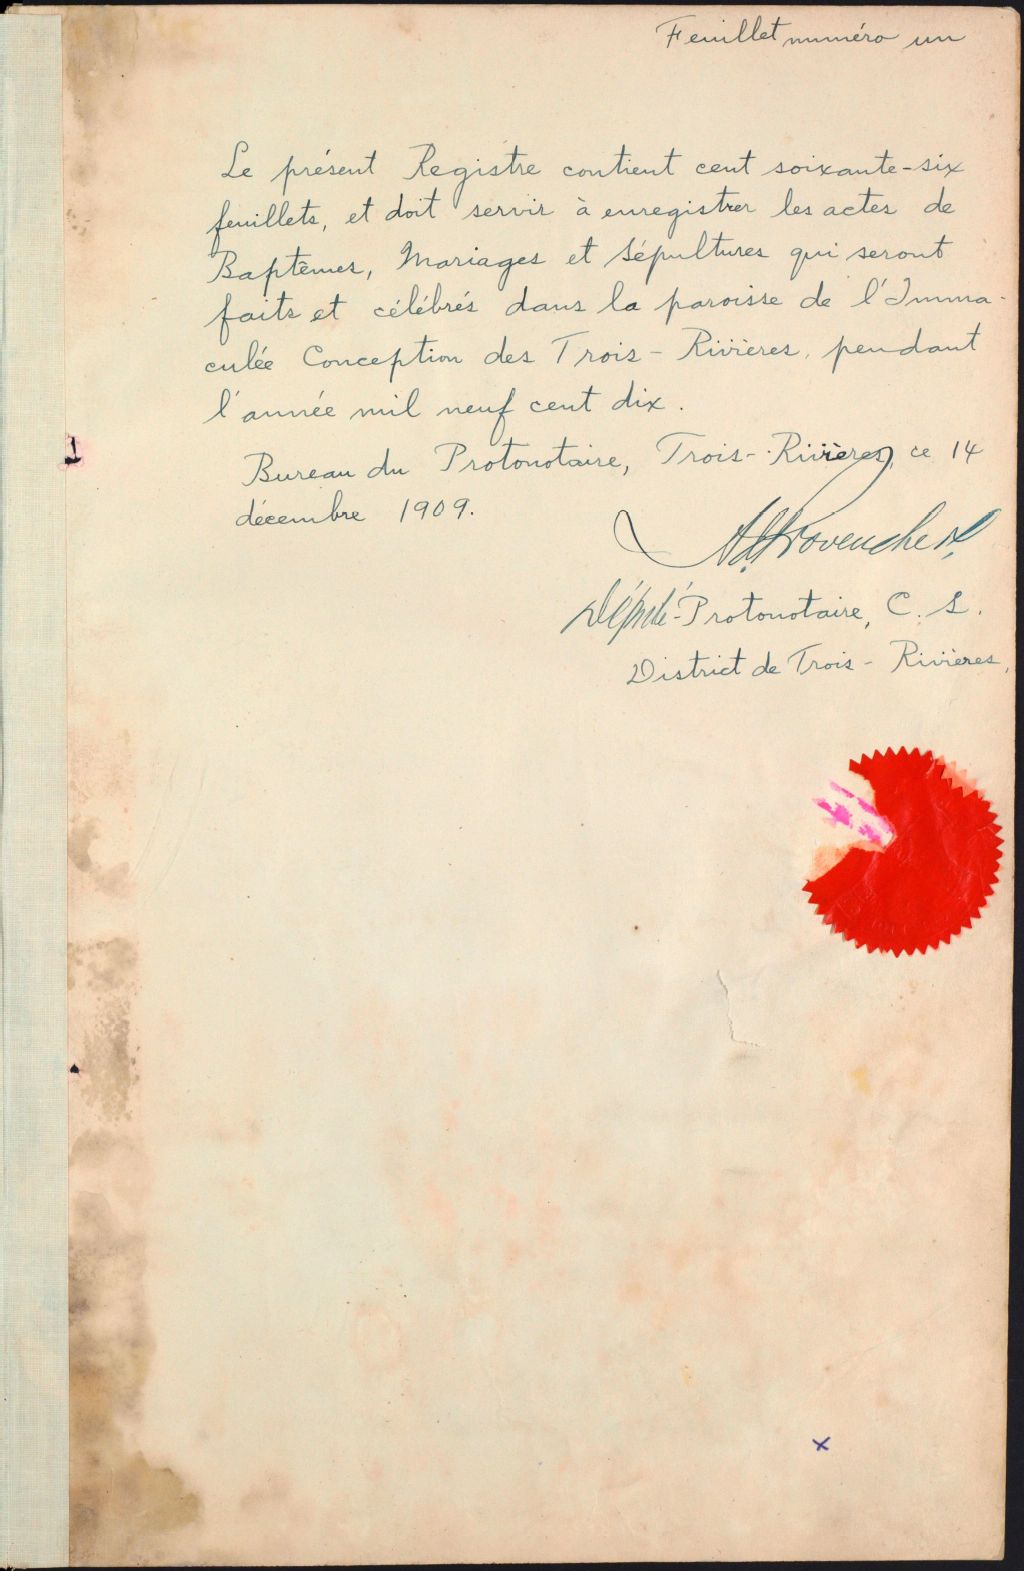 Feuillet numéro un
Le présent Registre contient cent soixante-six
feuillets, et doit servir à enregistrer les actes de
Baptêmes, Mariages et Sépultures qui seront
faits et célébrés dans la paroisse de l'Imma-
culée Conception des Trois-Rivières, pendant
l'année mil neuf cent dix.
Bureau du Protonotaire, Trois-Rivières, ce 14
décembre 1909.
Provencher,
Député-Protonotaire, C. S.
District de Trois-Rivières,